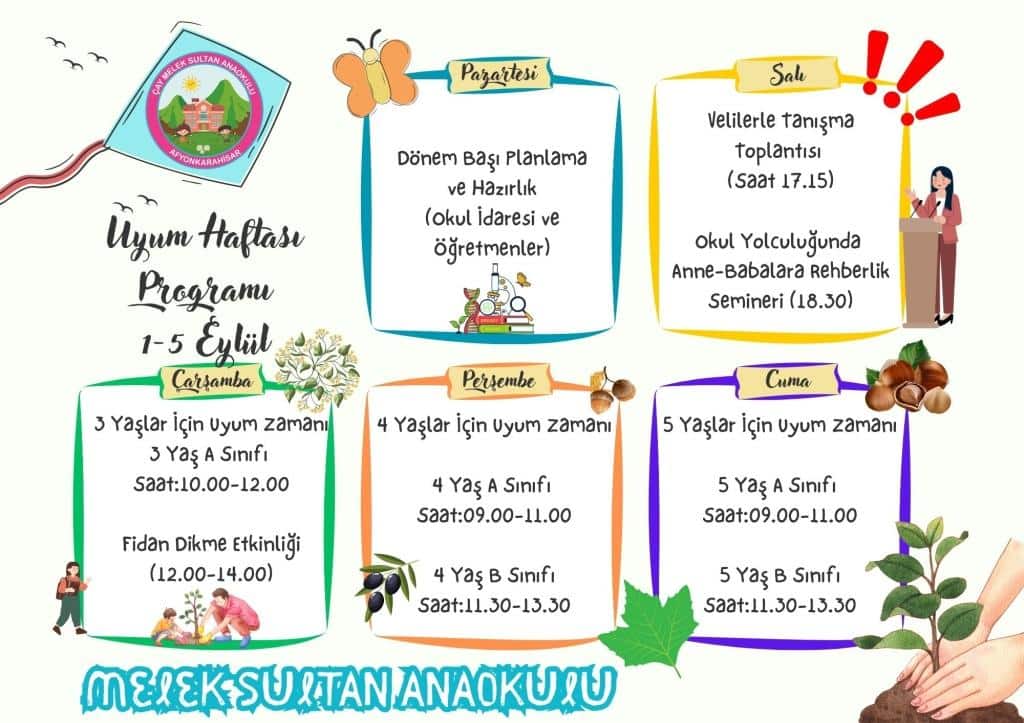 ÇAY MELEK SULTAN ANAOKULU
AFYONKARAHİSAR
Uyum Haftası
Programı
1-5 Eylül
Pazartesi
Dönem Başı Planlama
ve Hazırlık
(Okul İdaresi ve
Öğretmenler)
Salı
Velilerle Tanışma
Toplantısı
(Saat 17.15)
Okul Yolculuğunda
Anne-Babalara Rehberlik
Semineri (18.30)
Çarşamba
3 Yaşlar İçin Uyum Zamanı
3 Yaş A Sınıfı
Saat:10.00-12.00
Fidan Dikme Etkinliği
(12.00-14.00)
Perşembe
4 Yaşlar İçin Uyum Zamanı
4 Yaş A Sınıfı
Saat:09.00-11.00
4 Yaş B Sınıfı
Saat:11.30-13.30
Cuma
5 Yaşlar İçin Uyum Zamanı
5 Yaş A Sınıfı
Saat:09.00-11.00
5 Yaş B Sınıfı
Saat:11.30-13.30
MELEK SULTAN ANAOKULU